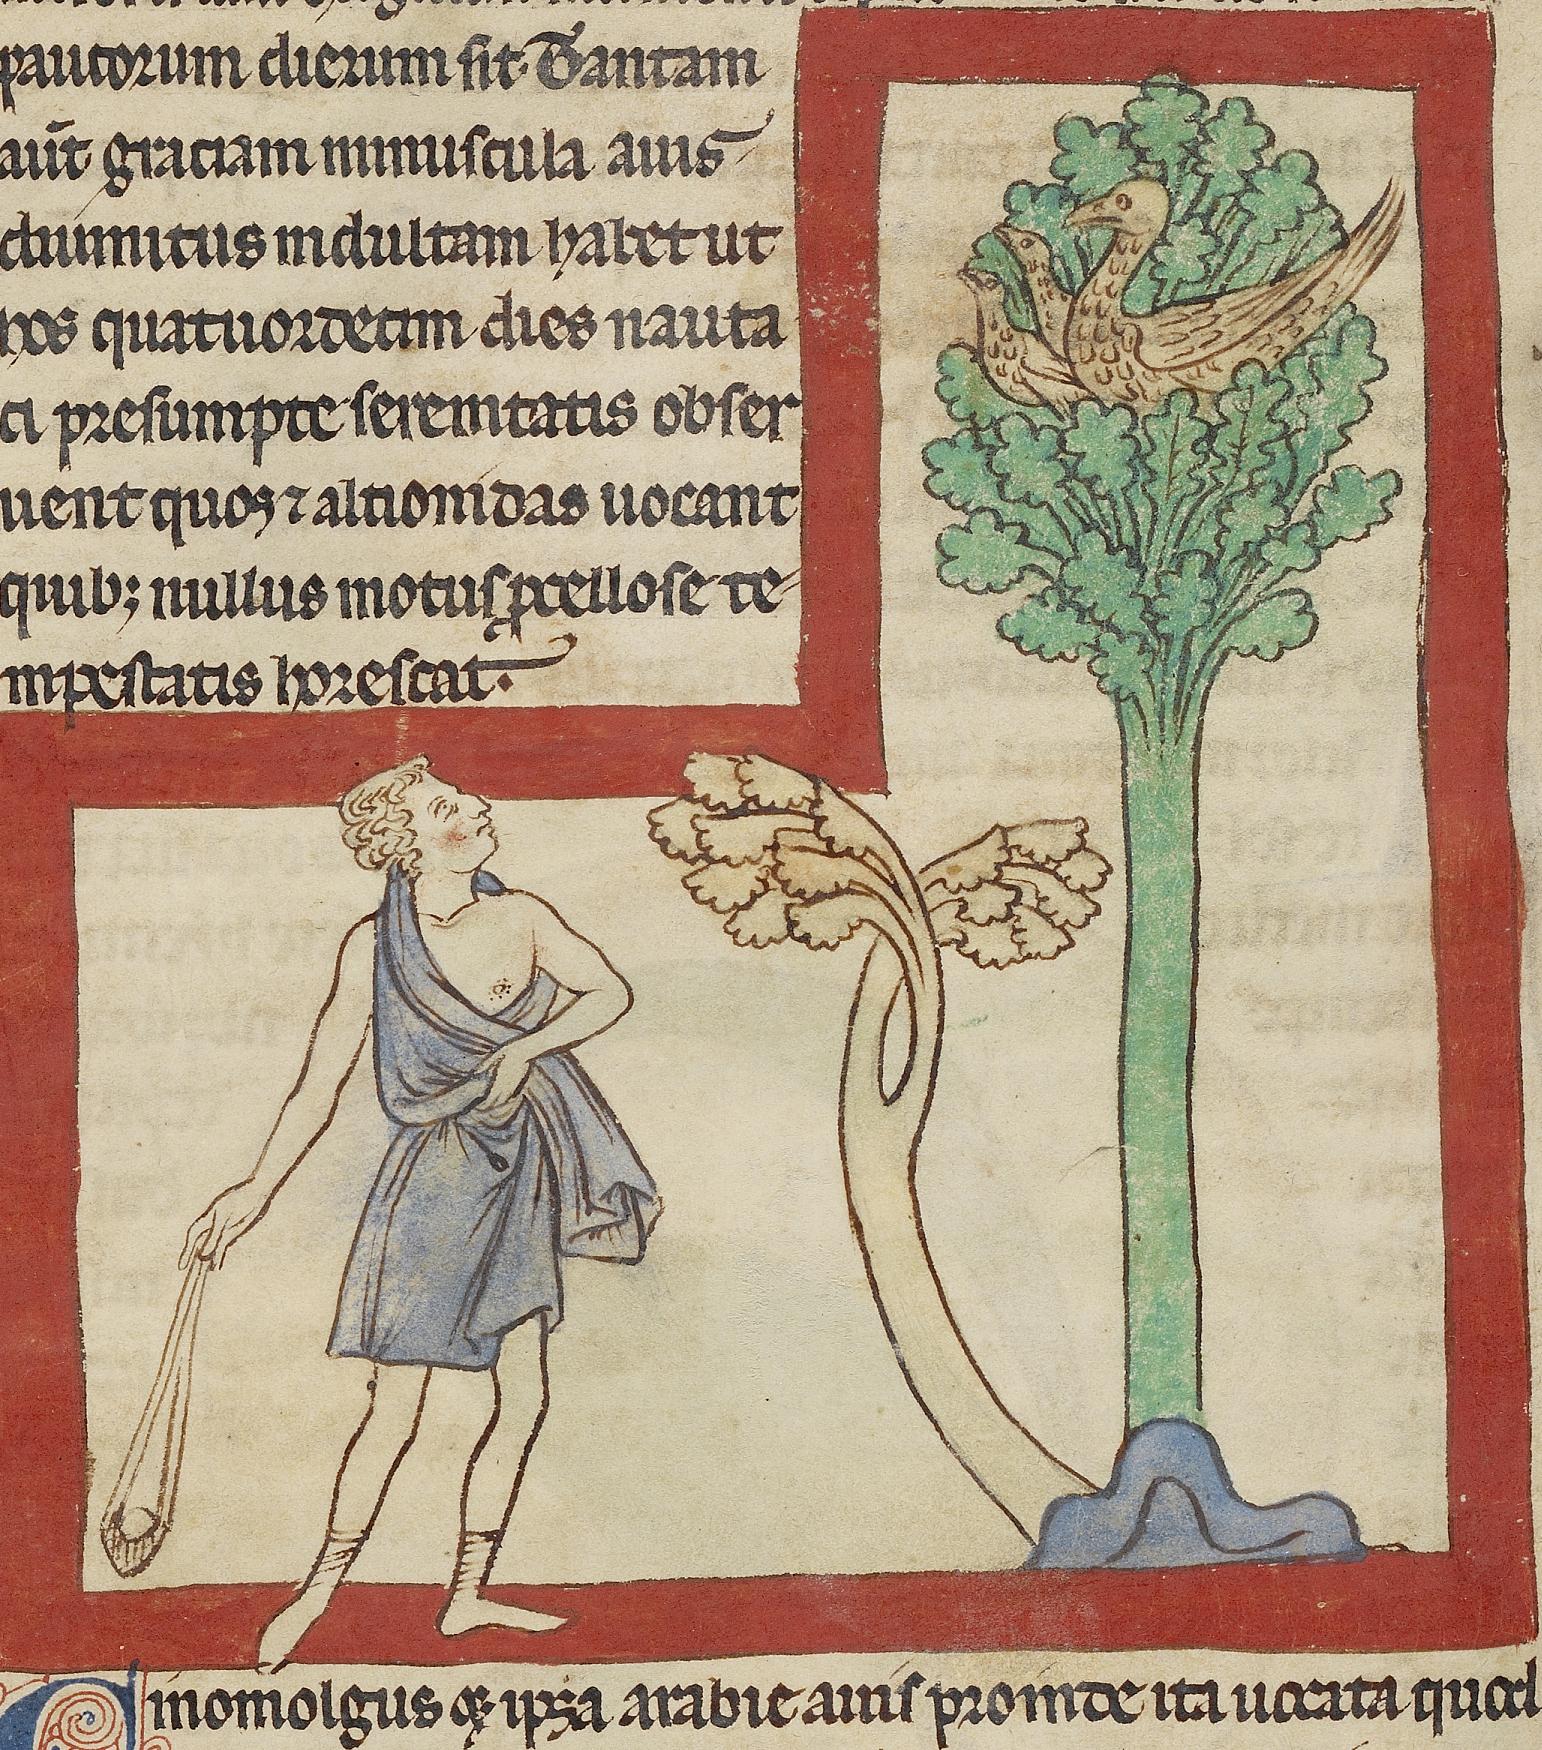 paucorum dierum sit. Tantam
aut̄ graciam minuscula auis
diuinitus indultam habet ut
hos quatuordecim dies nauta
ci presumpte serenitatis obser
uent quos ⁊ alcionidas uocant
quib; nullus motus ꝓcellose te-
mpestatis horescat.
Cinomolgus
arabie auis proinde ita uocata quod